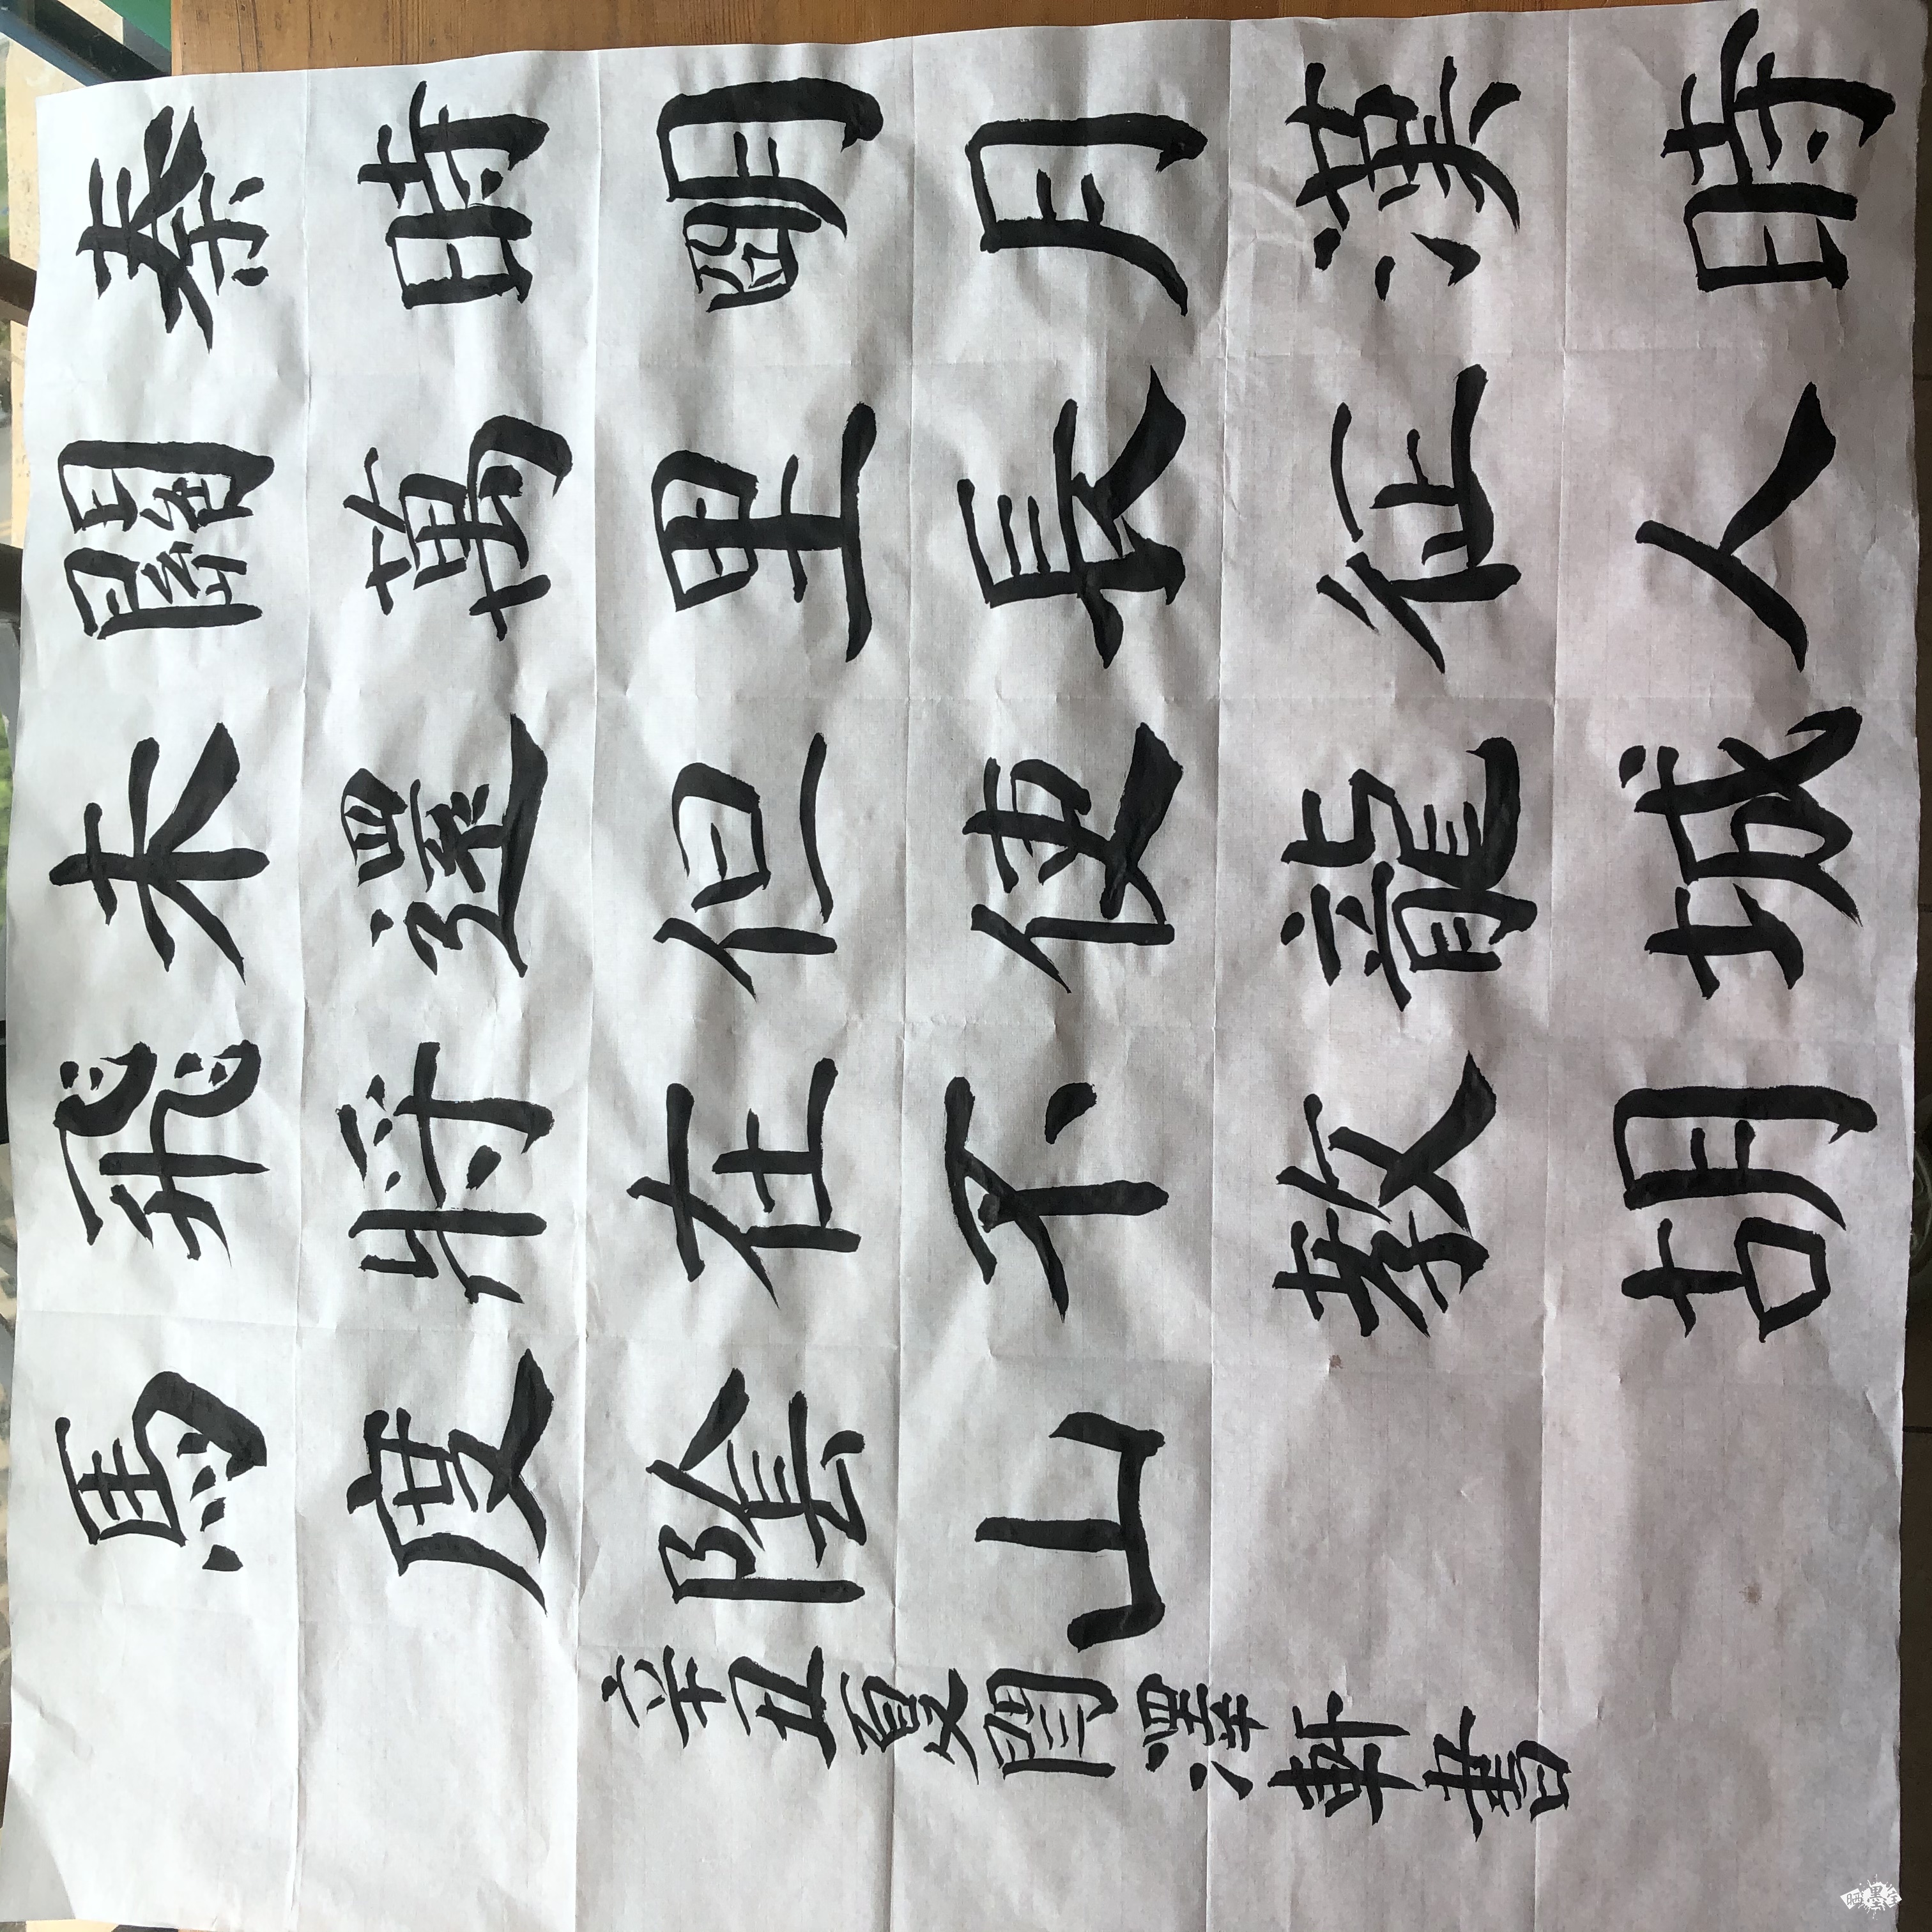 秦時明月漢時
關萬里長征人
未還但使龍城
飛將在不教胡
馬度陰山
辛丑夏閆澤軒書
晒墨宝